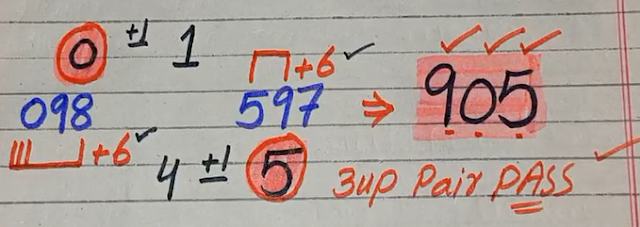 0 ±1 1
+6
098 597 ⇒ 905
+6
4 ±1 5
3up Pair PASS